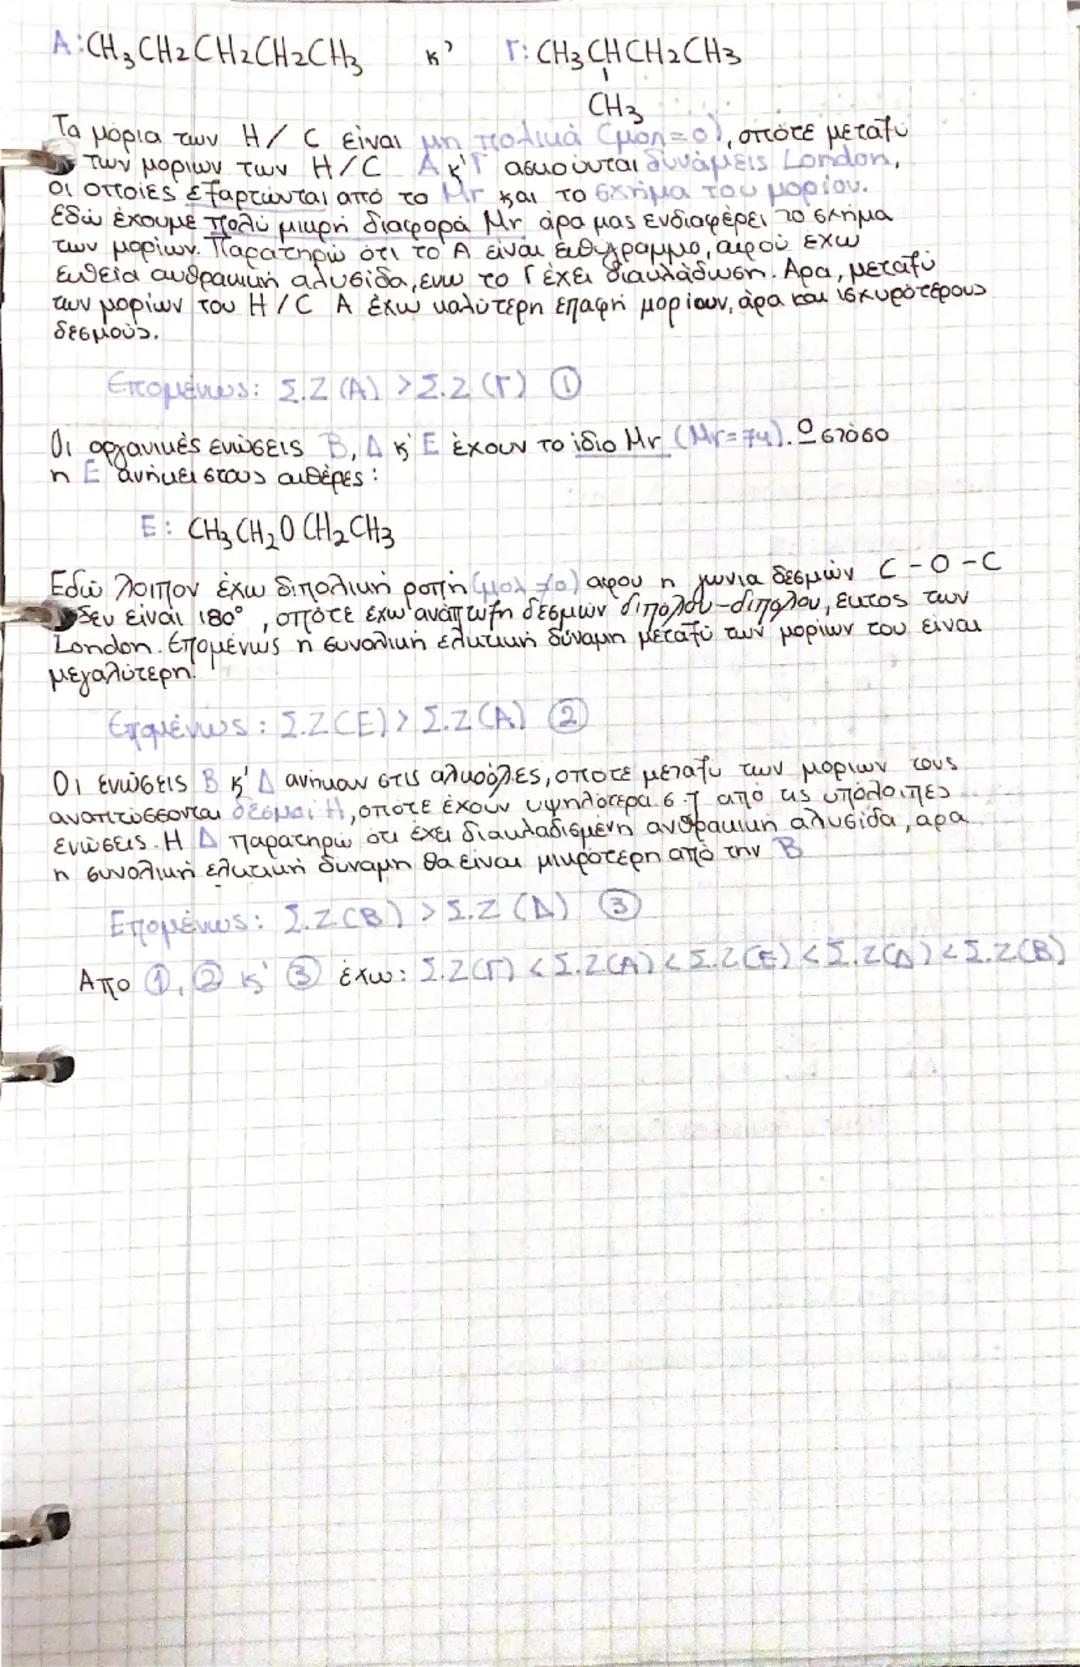 Α: CH3CH2CH2CH2CH3 κ' Γ: CH3CHCH2CH3
CH3
Τα μόρια των Η/C είναι μη πολικά (μολ=0), οπότε μεταξύ
των μορίων των Η/C Α κ' Γ ασκούνται δυνάμεις London,
οι οποίες εξαρτώνται από το Mr και το σχήμα του μορίου.
Εδώ έχουμε πολύ μικρή διαφορά Mr άρα μας ενδιαφέρει το σχήμα
των μορίων. Παρατηρώ ότι το Α είναι ευθύγραμμο, αφού έχω
ευθεία ανθρακική αλυσίδα, ενω το Γ έχει διακλάδωση. Αρα, μεταξύ
των μορίων του Η/C Α έχω καλύτερη επαφή μορίων, άρα και ισχυρότερους
δεσμούς.
Επομένως: Σ.Ζ (Α) > Σ.Ζ (Γ) ①
Οι οργανικές ενώσεις Β, Δ κ' Ε έχουν το ίδιο Mr (Mr=74). Ωστόσο
η Ε ανήκει στους αιθέρες:
Ε: CH3CH2OCH2CH3
Εδώ λοιπον έχω διπολική ροπή (μολ≠0) αφου η γωνία δεσμών C-O-C
δεν είναι 180°, οπότε έχω ανάπτυξη δεσμών διπόλου-διπόλου, εκτος των
London. Επομένως η συνολική ελκτική δύναμη μεταξύ των μορίων του είναι
μεγαλύτερη.
Επομένως: Σ.Ζ(Ε) > Σ.Ζ(Α) ②
Οι ενώσεις Β κ' Δ ανήκαν στις αλκοόλες, οπότε μεταξυ των μορίων τους
αναπτύσσονται δεσμοί Η, οπότε έχουν υψηλότερα σ.ζ από τις υπόλοιπες
ενώσεις. Η Δ παρατηρώ ότι έχει διακλαδισμένη ανθρακική αλυσίδα, αρα
η συνολική ελκτική δύναμη θα είναι μικρότερη από την Β
Επομένως: Σ.Ζ(Β) > Σ.Ζ (Δ) ③
Απο ①, ② κ' ③ έχω: Σ.Ζ(Γ) < Σ.Ζ(Α) < Σ.Ζ(Ε) < Σ.Ζ(Δ) < Σ.Ζ(Β)